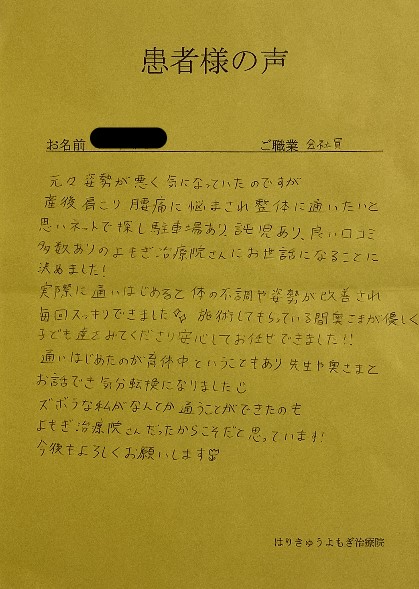 患者様の声
お名前 ご職業 会社員
元々姿勢が悪く気になっていたのですが
産後肩こり腰痛に悩まされ整体に通いたいと
思いネットで探し駐車場あり、託児あり、良い口コミ
多数ありのよもぎ治療院さんにお世話になることに
決めました!
実際に通いはじめると体の不調や姿勢が改善され
毎回スッキリできました 施術してもらっている間奥さまが優しく
子ども達をみてくださり安心してお任せできました!!
通いはじめたのが育休中ということもあり先生や奥さまと
お話でき気分転換になりました
ズボラな私がなんとか通うことができたのも
よもぎ治療院さんだったからこそだと思っています!
今後もよろしくお願いします
はりきゅうよもぎ治療院